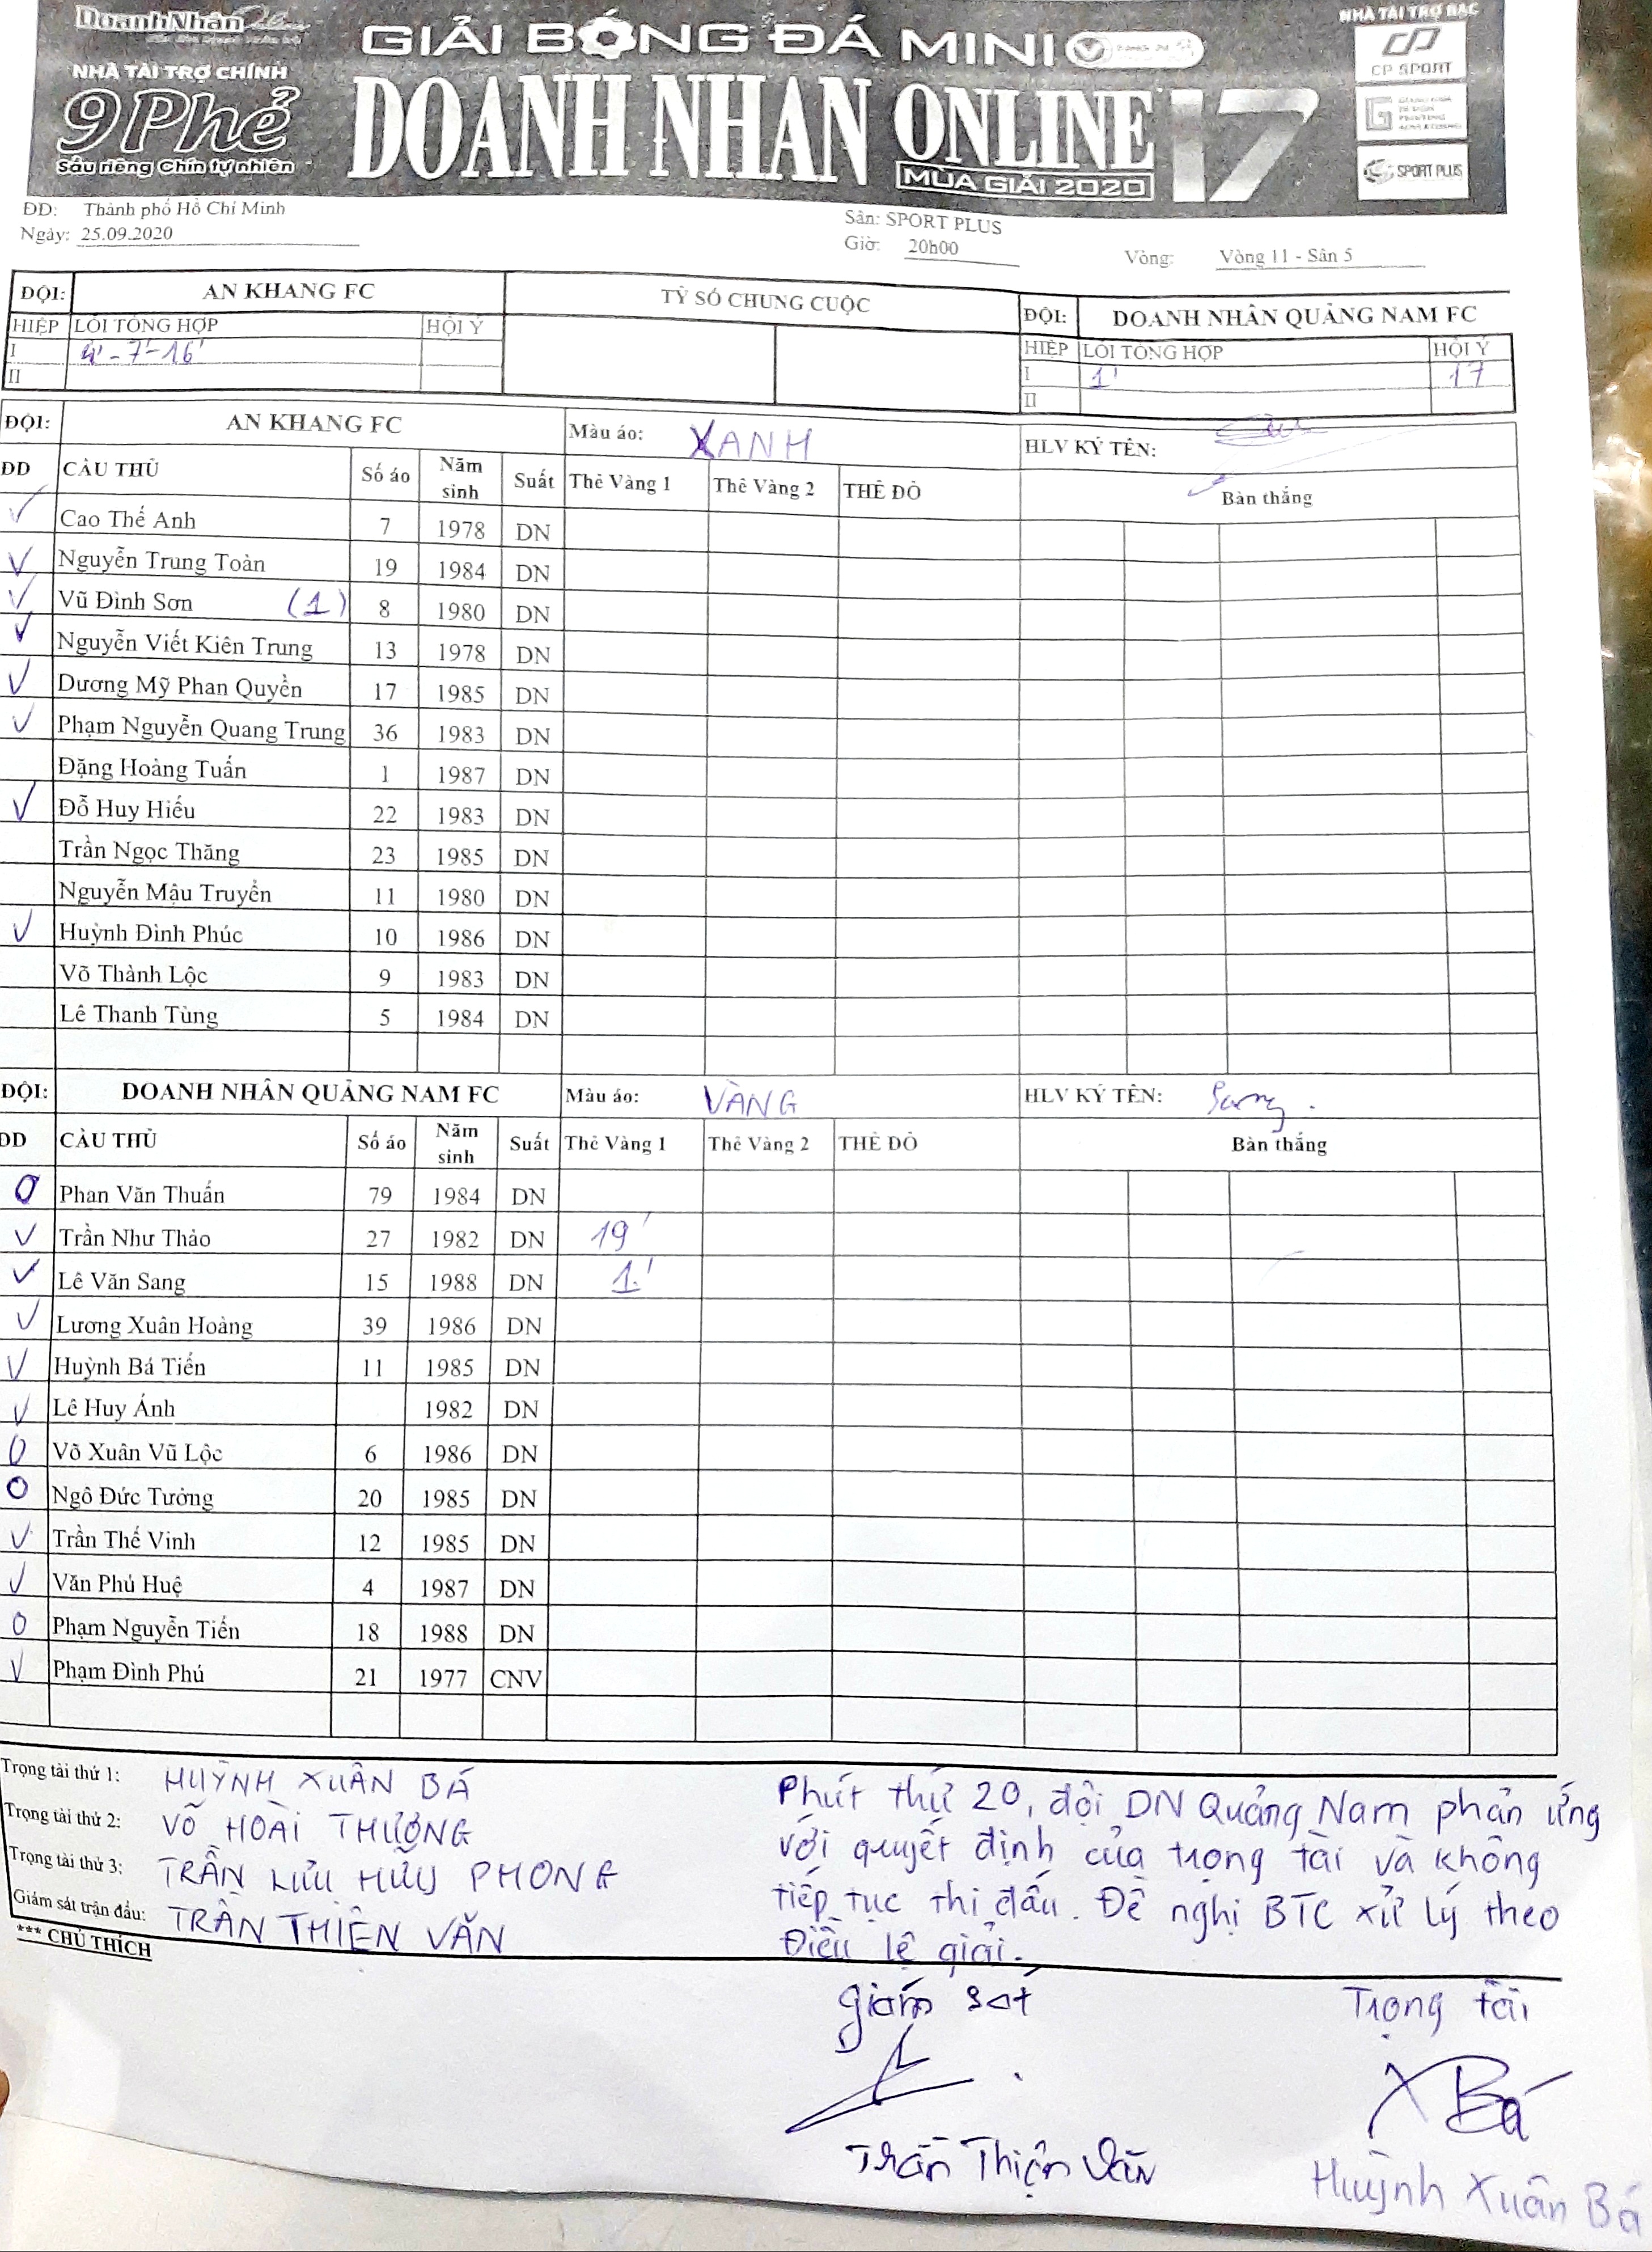 DoanhNhân Online
GIẢI BÓNG ĐÁ MINI
NHÀ TÀI TRỢ BẠC
NHÀ TÀI TRỢ CHÍNH
CP SPORT
9 Phẻ
DOANH NHAN ONLINE 17
Sầu riêng Chín tự nhiên
MÙA GIẢI 2020
SPORT PLUS
ĐD: Thành phố Hồ Chí Minh
Sân: SPORT PLUS
Ngày: 25.09.2020
Giờ: 20h00
Vòng: Vòng 11 - Sân 5
ĐỘI: AN KHANG FC TỶ SỐ CHUNG CUỘC ĐỘI: DOANH NHÂN QUẢNG NAM FC
HIỆP LỖI TỔNG HỢP HỘI Ý HIỆP LỖI TỔNG HỢP HỘI Ý
I 4'-7'-16' I 1' 17
II II
ĐỘI: AN KHANG FC Màu áo: XANH HLV KÝ TÊN:
ĐD CẦU THỦ Số áo Năm sinh Suất Thẻ Vàng 1 Thẻ Vàng 2 THẺ ĐỎ Bàn thắng
Cao Thế Anh 7 1978 DN
Nguyễn Trung Toàn 19 1984 DN
Vũ Đình Sơn (1) 8 1980 DN
Nguyễn Viết Kiên Trung 13 1978 DN
Dương Mỹ Phan Quyền 17 1985 DN
Phạm Nguyễn Quang Trung 36 1983 DN
Đặng Hoàng Tuấn 1 1987 DN
Đỗ Huy Hiếu 22 1983 DN
Trần Ngọc Thăng 23 1985 DN
Nguyễn Mậu Truyền 11 1980 DN
Huỳnh Đình Phúc 10 1986 DN
Võ Thành Lộc 9 1983 DN
Lê Thanh Tùng 5 1984 DN
ĐỘI: DOANH NHÂN QUẢNG NAM FC Màu áo: VÀNG HLV KÝ TÊN:
ĐD CẦU THỦ Số áo Năm sinh Suất Thẻ Vàng 1 Thẻ Vàng 2 THẺ ĐỎ Bàn thắng
Phan Văn Thuấn 79 1984 DN
Trần Như Thảo 27 1982 DN 19'
Lê Văn Sang 15 1988 DN 1'
Lương Xuân Hoàng 39 1986 DN
Huỳnh Bá Tiến 11 1985 DN
Lê Huy Ánh 1982 DN
Võ Xuân Vũ Lộc 6 1986 DN
Ngô Đức Tưởng 20 1985 DN
Trần Thế Vinh 12 1985 DN
Văn Phú Huệ 4 1987 DN
Phạm Nguyễn Tiến 18 1988 DN
Phạm Đình Phú 21 1977 CNV
Trọng tài thứ 1: HUỲNH XUÂN BÁ
Trọng tài thứ 2: VÕ HOÀI THƯƠNG
Trọng tài thứ 3: TRẦN LƯU HỮU PHONG
Giám sát trận đấu: TRẦN THIỆN VĂN
*** CHÚ THÍCH
Phút thứ 20, đội DN Quảng Nam phản ứng
với quyết định của trọng tài và không
tiếp tục thi đấu. Đề nghị BTC xử lý theo
Điều lệ giải.
Giám sát Trọng tài
XBá
Trần Thiện Văn Huỳnh Xuân Bá